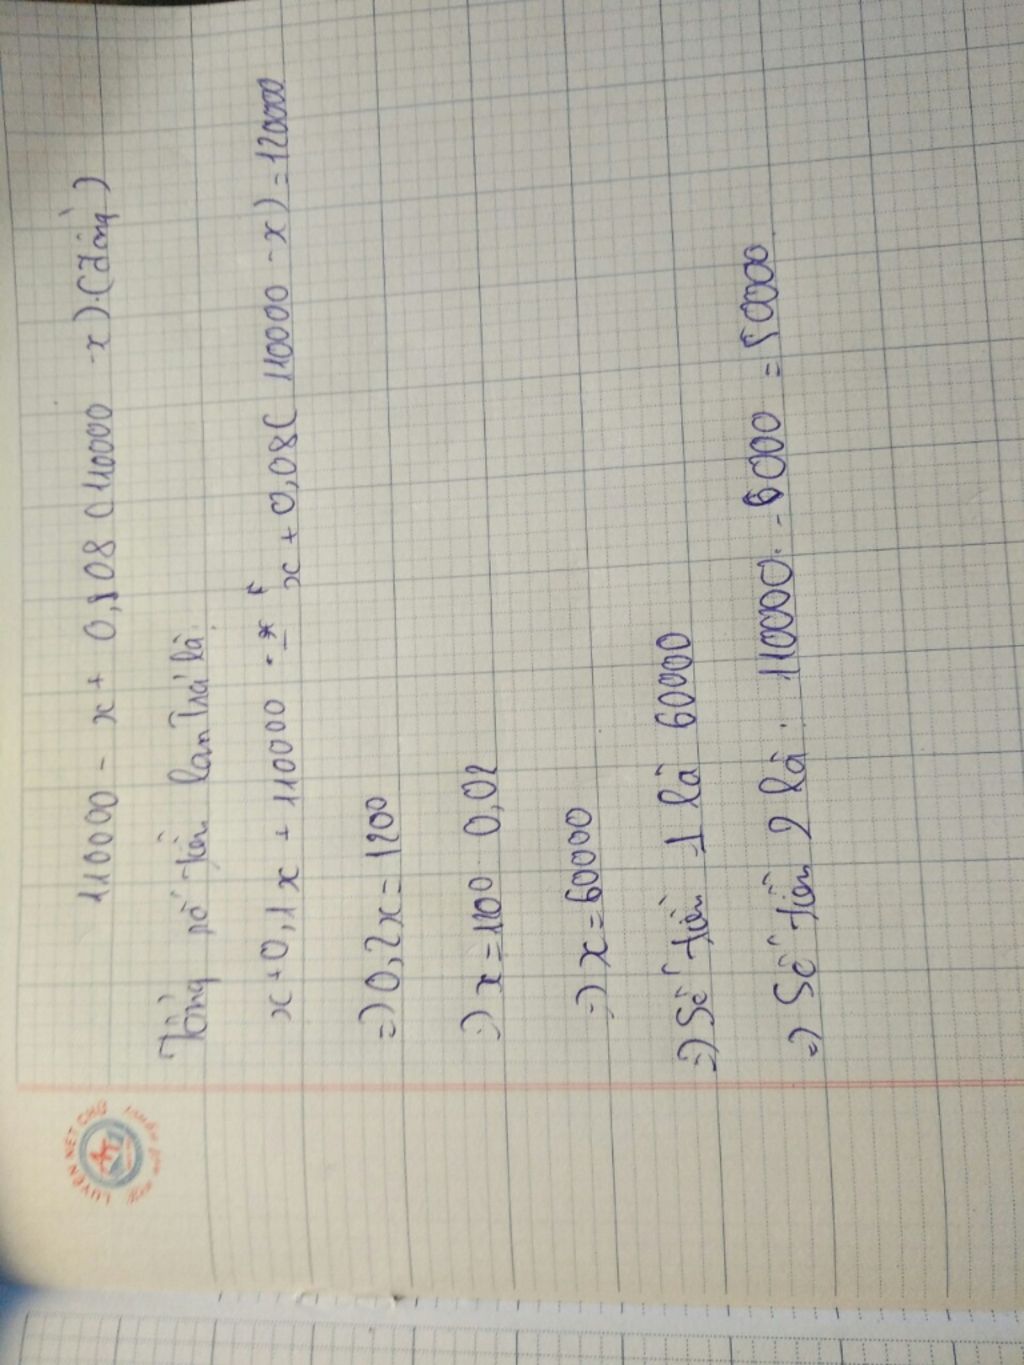 110000 - x + 0,108 (110000 -x).(đồng)
Tổng số tiền lan trả là:
x+0,1x + 110000 - x + 0,08( 110000 -x) = 120000
=) 0,2x = 1200
=) x = 1100 0,02
=) x = 60000
=) Số tiền 1 là 60000
=) Số tiền 2 là : 110000. - 6000 = 50000
LUYỆN NÉT CHỮ